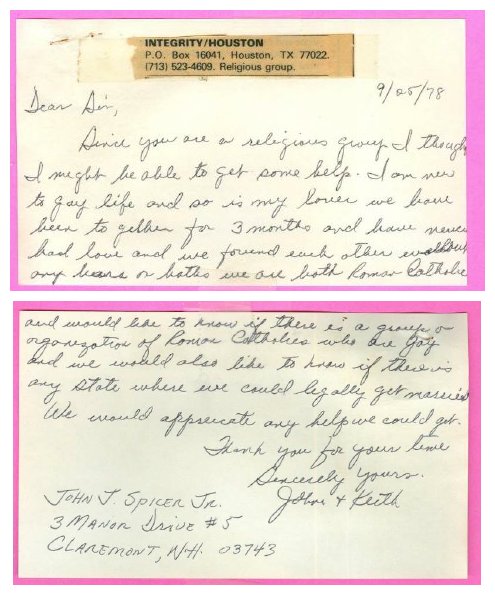 INTEGRITY/HOUSTON
P.O. Box 16041, Houston, TX 77022.
(713) 523-4609. Religious group.
9/25/78
Dear Sir,
Since you are a religious group I though
I might be able to get some help. I am new
to gay life and so is my lover we have
been to gether for 3 months and have never
had love and we found each other without
any bars or baths we are both Roman Catholic
and would like to know if there is a group or
organization of Roman Catholics who are gay
and we would also like to know if there is
any state where we could legally get married
We would appreicate any help we could get.
Thank you for your time
Sincerely yours.
John + Keith
JOHN J. SPICER JR.
3 MANOR DRIVE #5
CLAREMONT, N.H. 03743